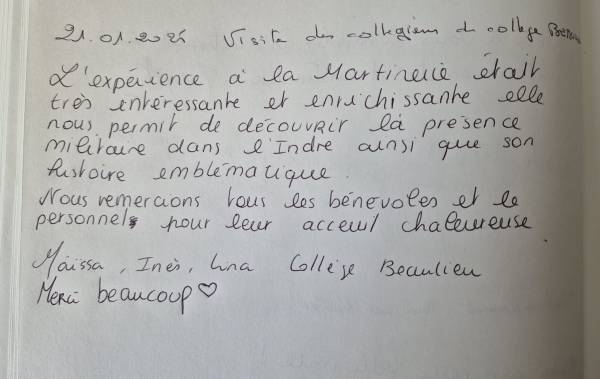 21.01.2025 Visite des collégiens du collège
L'expérience à la Martinerie était
très intéressante et enrichissante elle
nous permit de découvrir la présence
militaire dans l'Indre ainsi que son
histoire emblématique.
Nous remercions tous les bénévoles et le
personnels pour leur acceuil chaleureuse
Maïssa, Inès, Lina Collège Beaulieu
Merci beaucoup ♡